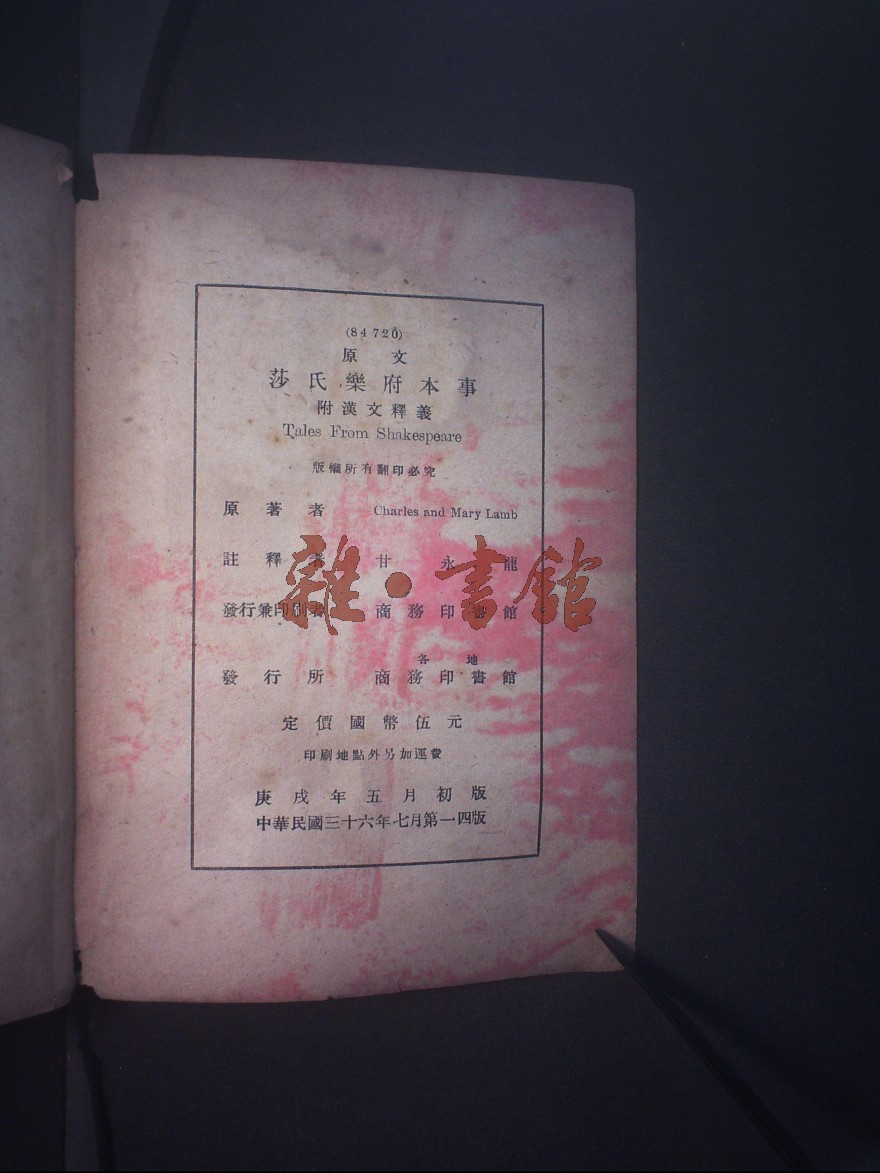 (84720)
原文
莎氏樂府本事
附漢文釋義
Tales From Shakespeare
版權所有翻印必究
原著者 Charles and Mary Lamb
註釋者 甘永龍
發行兼印刷者 商務印書館
各地
發行所 商務印書館
定價國幣伍元
印刷地點外另加運費
庚戌年五月初版
中華民國三十六年七月第一四版
雜·書館